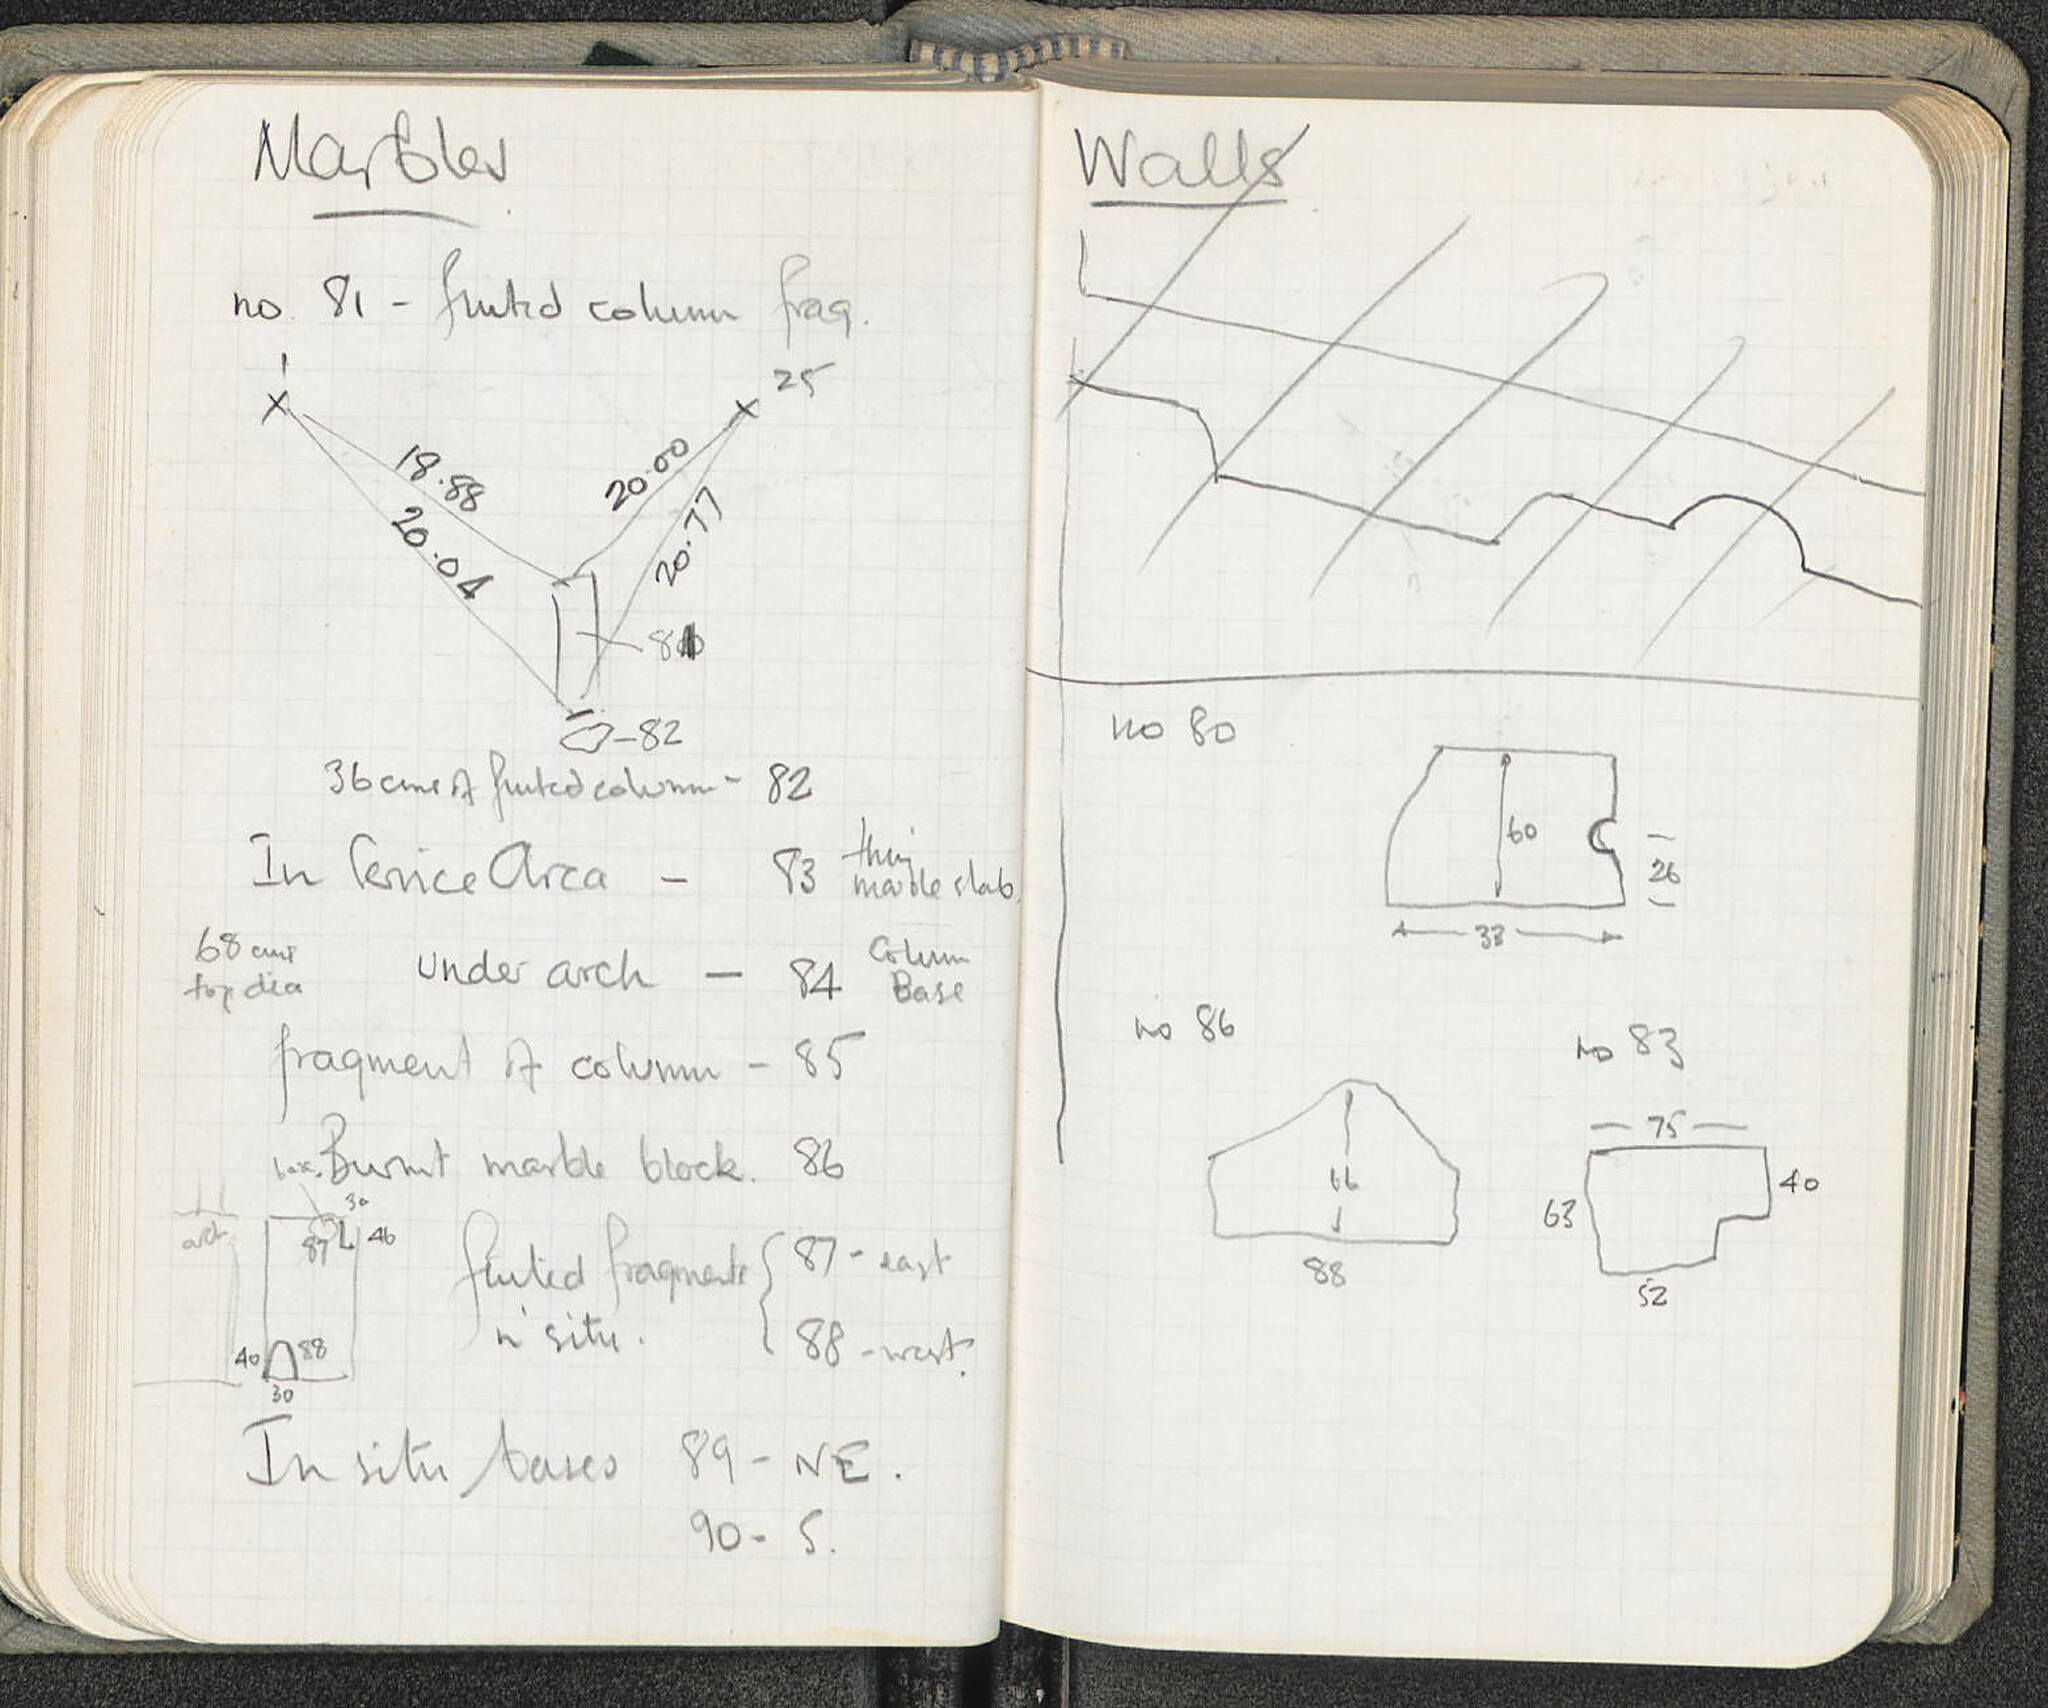 Marbles
no. 81 - fluted column frag.
1
25
18.88
20.00
20.04
20.77
81
82
36 cms of fluted column - 82
In Service Area - 83 thin marble slab.
68 cms top dia
under arch - 84 Column Base
fragment of column - 85
Burnt marble block. 86
30
arch
87
46
fluted fragments in situ.
87 - east
88 - west.
40
88
30
In situ bases 89 - NE.
90 - S.
Walls
no 80
60
26
33
no 86
no 83
75
40
63
88
52